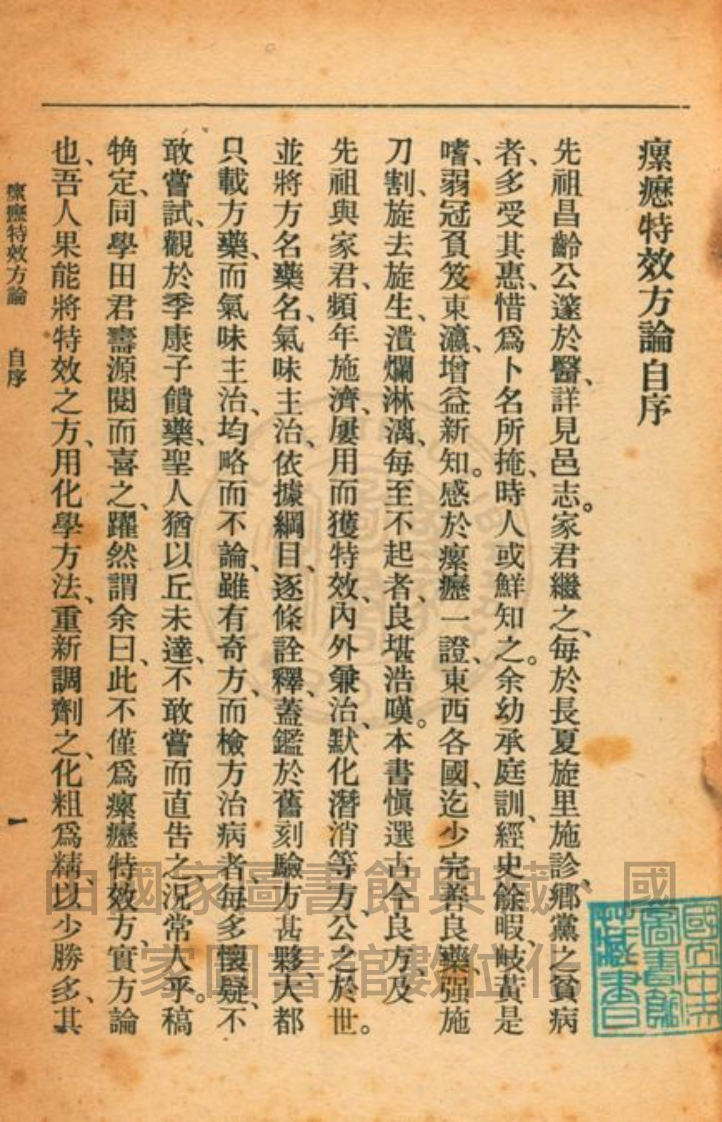 瘰癧特效方論自序
先祖昌齡公邃於醫、詳見邑志。家君繼之、每於長夏旋里施診、鄉黨之貧病
者、多受其惠、惜爲卜名所掩、時人或鮮知之。余幼承庭訓、經史餘暇、岐黃是
嗜、弱冠負笈東瀛、增益新知。感於瘰癧一證、東西各國、迄少完善良藥、强施
刀割、旋去旋生、潰爛淋漓、每至不起者、良堪浩嘆。本書愼選古今良方、及
先祖與家君、頻年施濟、屢用而獲特效、內外兼治、默化潛消等方、公之於世。
並將方名藥名、氣味主治、依據綱目、逐條詮釋、蓋鑑於舊刻驗方甚夥、大都
只載方藥、而氣味主治、均略而不論、雖有奇方、而檢方治病者、每多懷疑、不
敢嘗試、觀於季康子饋藥、聖人猶以丘未達、不敢嘗而直告之、況常人乎。稿
觕定、同學田君壽源閱而喜之、躍然謂余曰、此不僅爲瘰癧特效方、實方論
也、吾人果能將特效之方、用化學方法、重新調劑之、化粗爲精、以少勝多、其
瘰癧特效方論　自序
一
國立中央
圖書館
藏書
由國家圖書館典藏　國
家圖書館數位化